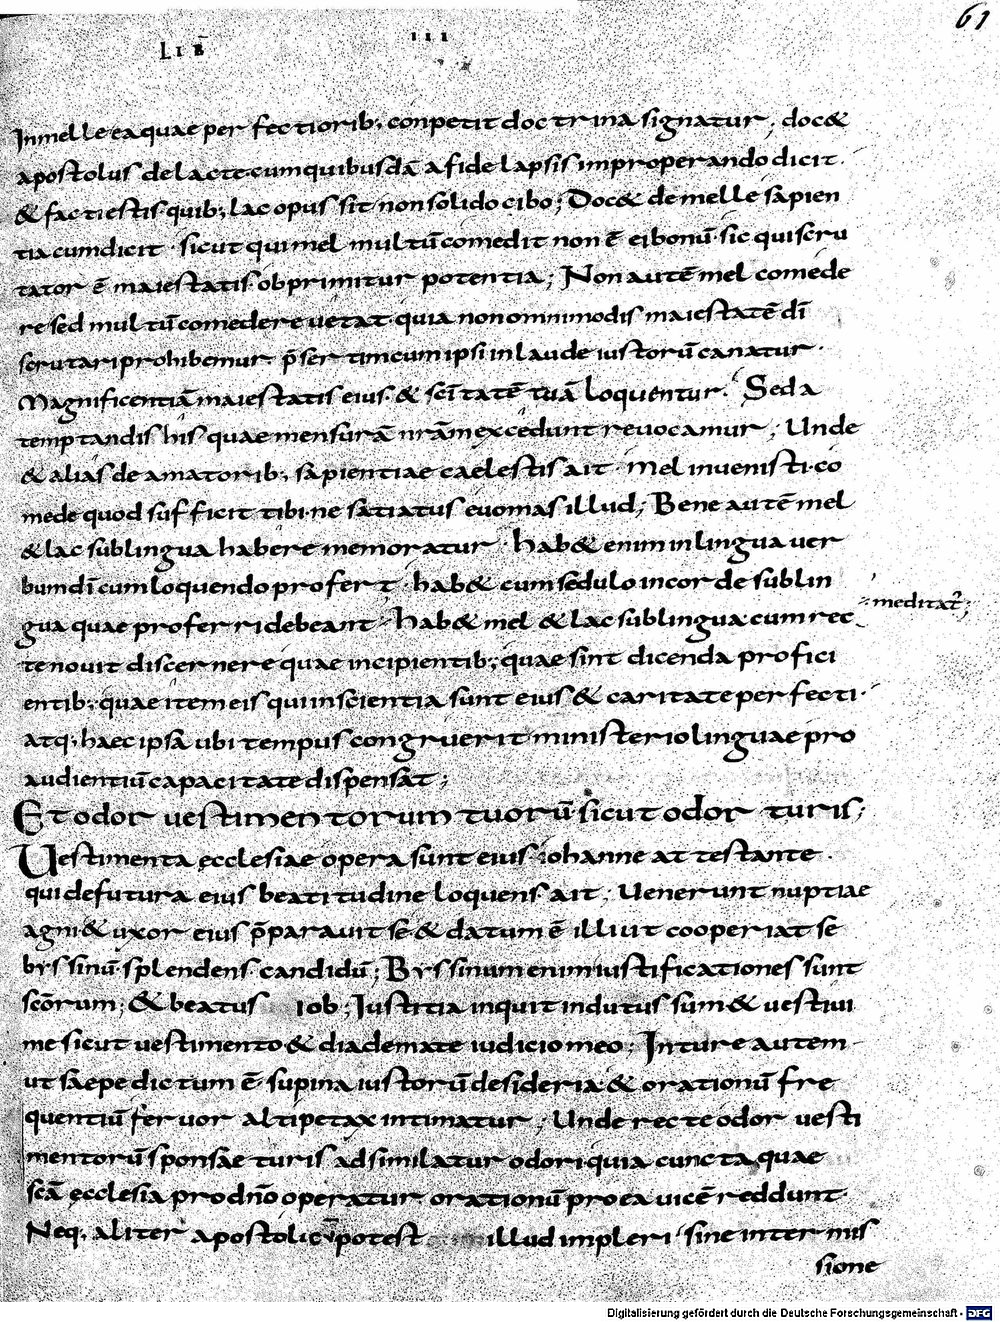 LIB̄ III 61
Inmelle ea quae perfectiorib; conpetit doctrina signatur; doc&
apostolus de lacte cum quibusdā a fide lapsis improperando dicit.
& facti estis quib; lac opus sit non solido cibo; Doc& de melle sapien
tia cum dicit sicut qui mel multū comedit non ē ei bonū sic qui scru
tator ē maiestatis obprimitur potentia; Non autē mel comede
re sed multū comedere uetat quia non omnimodis maiestatē dī
scrutari prohibemur p̄sertim cum ipsi in laude iustorū canatur.
Magnificentiā maiestatis eius & scītatē tuā loquentur. Sed a
temptandis his quae mensurā nrām excedunt reuocamur; Unde
& alias de amatorib; sapientiae caelestis ait mel inuenisti co
mede quod sufficit tibi ne satiatus euomas illud; Bene autē mel
& lac sub lingua habere memoratur hab& enim in lingua uer
bum dī cum loquendo profert hab& cum sedulo in corde sub lin
gua quae proferri debeant hab& mel & lac sub lingua cum rec
meditat̄;
te nouit discernere quae incipientib; quae sint dicenda profici
entib; quae item eis qui in scientia sunt eius & caritate perfecti
atq; haec ipsa ubi tempus congruerit ministerio linguae pro
audientiū capacitate dispensat;
Et odor uestimentorum tuorū sicut odor turis;
Uestimenta ecclesiae opera sunt eius iohanne attestante.
qui de futura eius beatitudine loquens ait; Uenerunt nuptiae
agni & uxor eius p̄parauit se & datum ē illi ut cooperiat se
byssinū splendens candidū; Byssinum enim iustificationes sunt
scōrum; & beatus iob; Iustitia inquit indutus sum & uestiui
me sicut uestimento & diademate iudicio meo; In ture autem
ut saepe dictum ē supina iustorū desideria & orationū fre
quentiū feruor altipetax intimatur; Unde recte odor uesti
mentorū sponsae turis adsimilatur odori quia cuncta quae
scā ecclesia pro dn̄o operatur orationū pro ea uicē reddunt.
Neq; aliter potest illud impleri sine intermis
sione
Digitalisierung gefördert durch die Deutsche Forschungsgemeinschaft - DFG